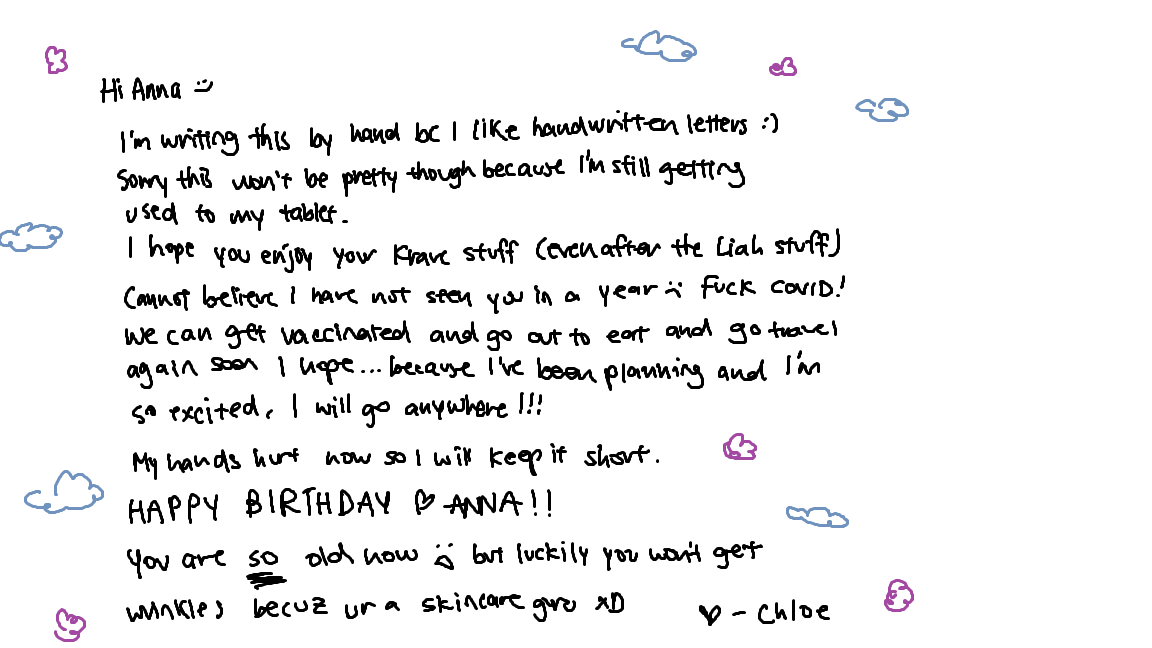 Hi Anna :)
I'm writing this by hand bc I like handwritten letters :)
Sorry this won't be pretty though because I'm still getting
used to my tablet.
I hope you enjoy your Krave stuff (even after the Liah stuff)
Cannot believe I have not seen you in a year :( Fuck COVID!
We can get vaccinated and go out to eat and go travel
again soon I hope... because I've been planning and I'm
so excited, I will go anywhere!!!
My hands hurt now so I will keep it short.
HAPPY BIRTHDAY ♡ ANNA!!
You are so old now :( but luckily you won't get
wrinkles becuz ur a skincare guru XD
♡ - Chloe